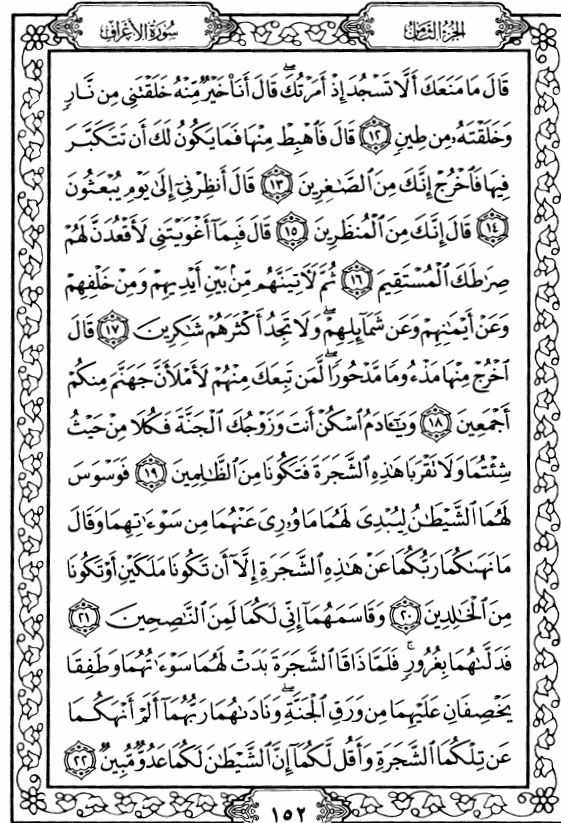 سُورَةُ الأَعْرَافِ
الجُزْءُ الثَّامِنُ
قَالَ مَا مَنَعَكَ أَلَّا تَسْجُدَ إِذْ أَمَرْتُكَ ۖ قَالَ أَنَا۠ خَيْرٌ مِّنْهُ خَلَقْتَنِى مِن نَّارٍ
وَخَلَقْتَهُۥ مِن طِينٍ ١٢ قَالَ فَٱهْبِطْ مِنْهَا فَمَا يَكُونُ لَكَ أَن تَتَكَبَّرَ
فِيهَا فَٱخْرُجْ إِنَّكَ مِنَ ٱلصَّٰغِرِينَ ١٣ قَالَ أَنظِرْنِىٓ إِلَىٰ يَوْمِ يُبْعَثُونَ
١٤ قَالَ إِنَّكَ مِنَ ٱلْمُنظَرِينَ ١٥ قَالَ فَبِمَآ أَغْوَيْتَنِى لَأَقْعُدَنَّ لَهُمْ
صِرَٰطَكَ ٱلْمُسْتَقِيمَ ١٦ ثُمَّ لَءَاتِيَنَّهُم مِّنۢ بَيْنِ أَيْدِيهِمْ وَمِنْ خَلْفِهِمْ
وَعَنْ أَيْمَٰنِهِمْ وَعَن شَمَآئِلِهِمْ ۖ وَلَا تَجِدُ أَكْثَرَهُمْ شَٰكِرِينَ ١٧ قَالَ
ٱخْرُجْ مِنْهَا مَذْءُومًا مَّدْحُورًا ۖ لَّمَن تَبِعَكَ مِنْهُمْ لَأَمْلَأَنَّ جَهَنَّمَ مِنكُمْ
أَجْمَعِينَ ١٨ وَيَٰٓـَٔادَمُ ٱسْكُنْ أَنتَ وَزَوْجُكَ ٱلْجَنَّةَ فَكُلَا مِنْ حَيْثُ
شِئْتُمَا وَلَا تَقْرَبَا هَٰذِهِ ٱلشَّجَرَةَ فَتَكُونَا مِنَ ٱلظَّٰلِمِينَ ١٩ فَوَسْوَسَ
لَهُمَا ٱلشَّيْطَٰنُ لِيُبْدِىَ لَهُمَا مَا وُۥرِىَ عَنْهُمَا مِن سَوْءَٰتِهِمَا وَقَالَ
مَا نَهَىٰكُمَا رَبُّكُمَا عَنْ هَٰذِهِ ٱلشَّجَرَةِ إِلَّآ أَن تَكُونَا مَلَكَيْنِ أَوْ تَكُونَا
مِنَ ٱلْخَٰلِدِينَ ٢٠ وَقَاسَمَهُمَآ إِنِّى لَكُمَا لَمِنَ ٱلنَّٰصِحِينَ ٢١
فَدَلَّىٰهُمَا بِغُرُورٍ ۚ فَلَمَّا ذَاقَا ٱلشَّجَرَةَ بَدَتْ لَهُمَا سَوْءَٰتُهُمَا وَطَفِقَا
يَخْصِفَانِ عَلَيْهِمَا مِن وَرَقِ ٱلْجَنَّةِ ۖ وَنَادَىٰهُمَا رَبُّهُمَآ أَلَمْ أَنْهَكُمَا
عَن تِلْكُمَا ٱلشَّجَرَةِ وَأَقُل لَّكُمَآ إِنَّ ٱلشَّيْطَٰنَ لَكُمَا عَدُوٌّ مُّبِينٌ ٢٢
١٥٢